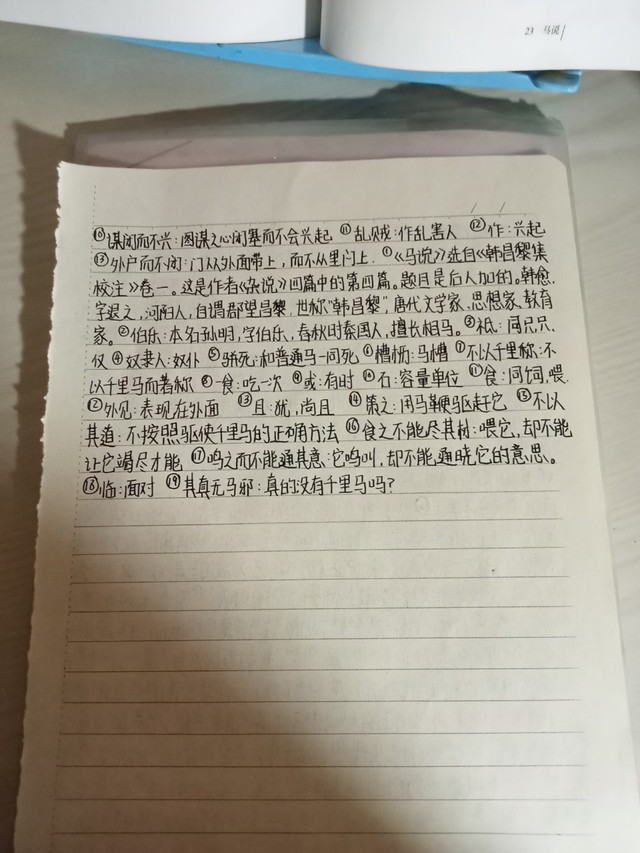 23 马说
/ /
⑩谋闭而不兴:图谋之心闭塞而不会兴起 ⑪乱贼:作乱害人 ⑫作:兴起
⑬外户而不闭:门从外面带上,而不从里闩上. ①《马说》选自《韩昌黎集
校注》卷一。这是作者《杂说》四篇中的第四篇。题目是后人加的。韩愈,
字退之,河阳人,自谓郡望昌黎,世称"韩昌黎",唐代文学家、思想家、教育
家。②伯乐:本名孙明,字伯乐,春秋时秦国人,擅长相马。③祗:同只,只、
仅 ④奴隶人:奴仆 ⑤骈死:和普通马一同死 ⑥槽枥:马槽 ⑦不以千里称:不
以千里马而著称 ⑧一食:吃一次 ⑨或:有时 ⑩石:容量单位 ⑪食:同饲,喂.
⑫外见:表现在外面 ⑬且:犹,尚且 ⑭策之:用马鞭驱赶它 ⑮不以
其道:不按照驱使千里马的正确方法 ⑯食之不能尽其材:喂它,却不能
让它竭尽才能 ⑰鸣之而不能通其意:它鸣叫,却不能通晓它的意思。
⑱临:面对 ⑲其真无马邪:真的没有千里马吗?